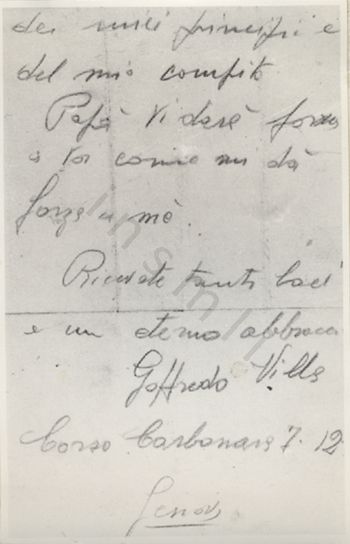 dei miei principi e
del mio compito
Papà vi darà forza
a voi come mi dà
forza a mè.
Ricevete tanti baci
e un eterno abbraccio
Goffredo Villa
Corso Carbonara 7. 12
Genova